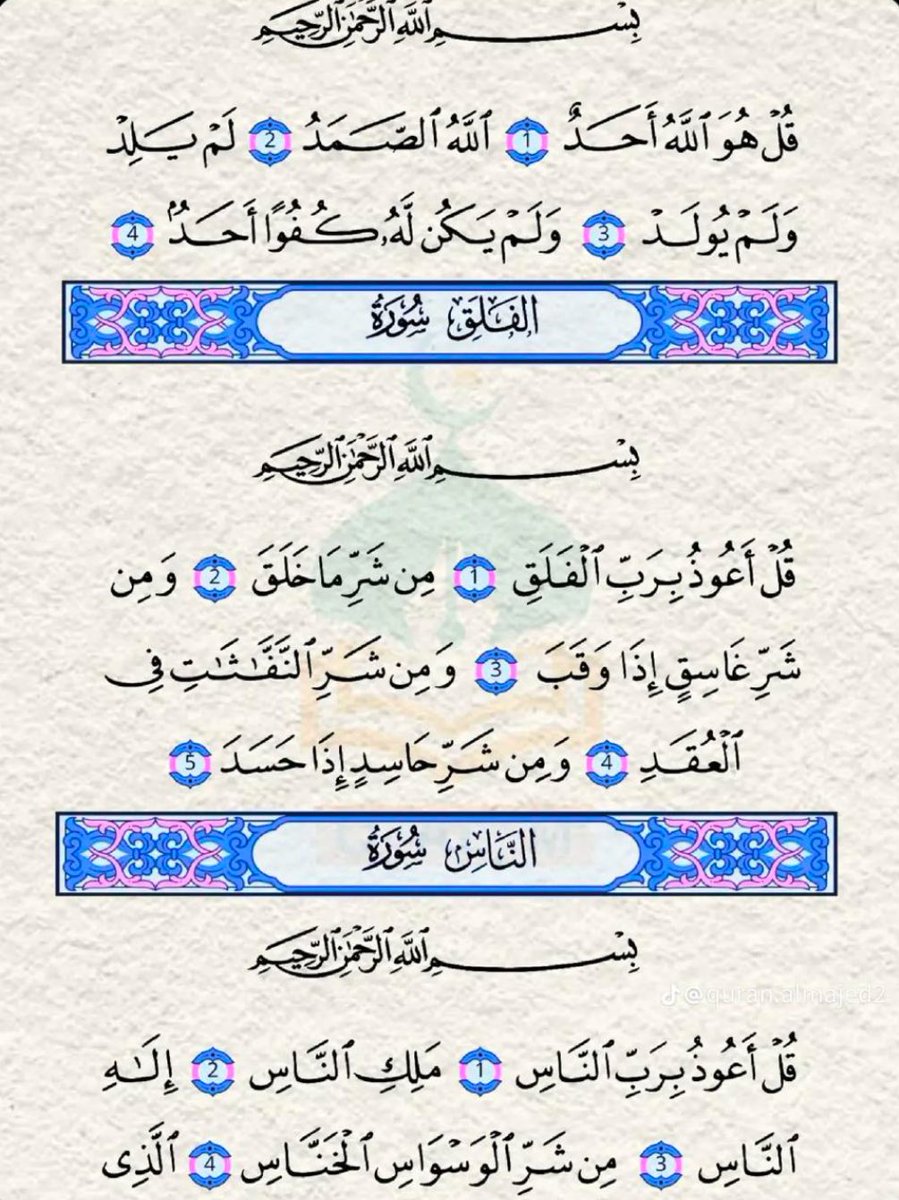 بِسْمِ ٱللَّهِ ٱلرَّحْمَٰنِ ٱلرَّحِيمِ
قُلْ هُوَ ٱللَّهُ أَحَدٌ 1 ٱللَّهُ ٱلصَّمَدُ 2 لَمْ يَلِدْ
وَلَمْ يُولَدْ 3 وَلَمْ يَكُن لَّهُۥ كُفُوًا أَحَدٌۢ 4
الفَلَقِ سُورَةُ
بِسْمِ ٱللَّهِ ٱلرَّحْمَٰنِ ٱلرَّحِيمِ
قُلْ أَعُوذُ بِرَبِّ ٱلْفَلَقِ 1 مِن شَرِّ مَا خَلَقَ 2 وَمِن
شَرِّ غَاسِقٍ إِذَا وَقَبَ 3 وَمِن شَرِّ ٱلنَّفَّٰثَٰتِ فِى
ٱلْعُقَدِ 4 وَمِن شَرِّ حَاسِدٍ إِذَا حَسَدَ 5
النَّاسِ سُورَةُ
بِسْمِ ٱللَّهِ ٱلرَّحْمَٰنِ ٱلرَّحِيمِ
@quran.almajed2
قُلْ أَعُوذُ بِرَبِّ ٱلنَّاسِ 1 مَلِكِ ٱلنَّاسِ 2 إِلَٰهِ
ٱلنَّاسِ 3 مِن شَرِّ ٱلْوَسْوَاسِ ٱلْخَنَّاسِ 4 ٱلَّذِى